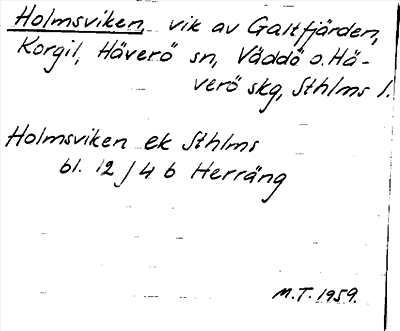 Holmsviken, vik av Galtfjärden,
Korgil, Häverö sn, Väddö o. Hä-
verö skg, Sthlms l.
Holmsviken ek Sthlms
bl. 12 J 4 b Herräng
M.T. 1959.